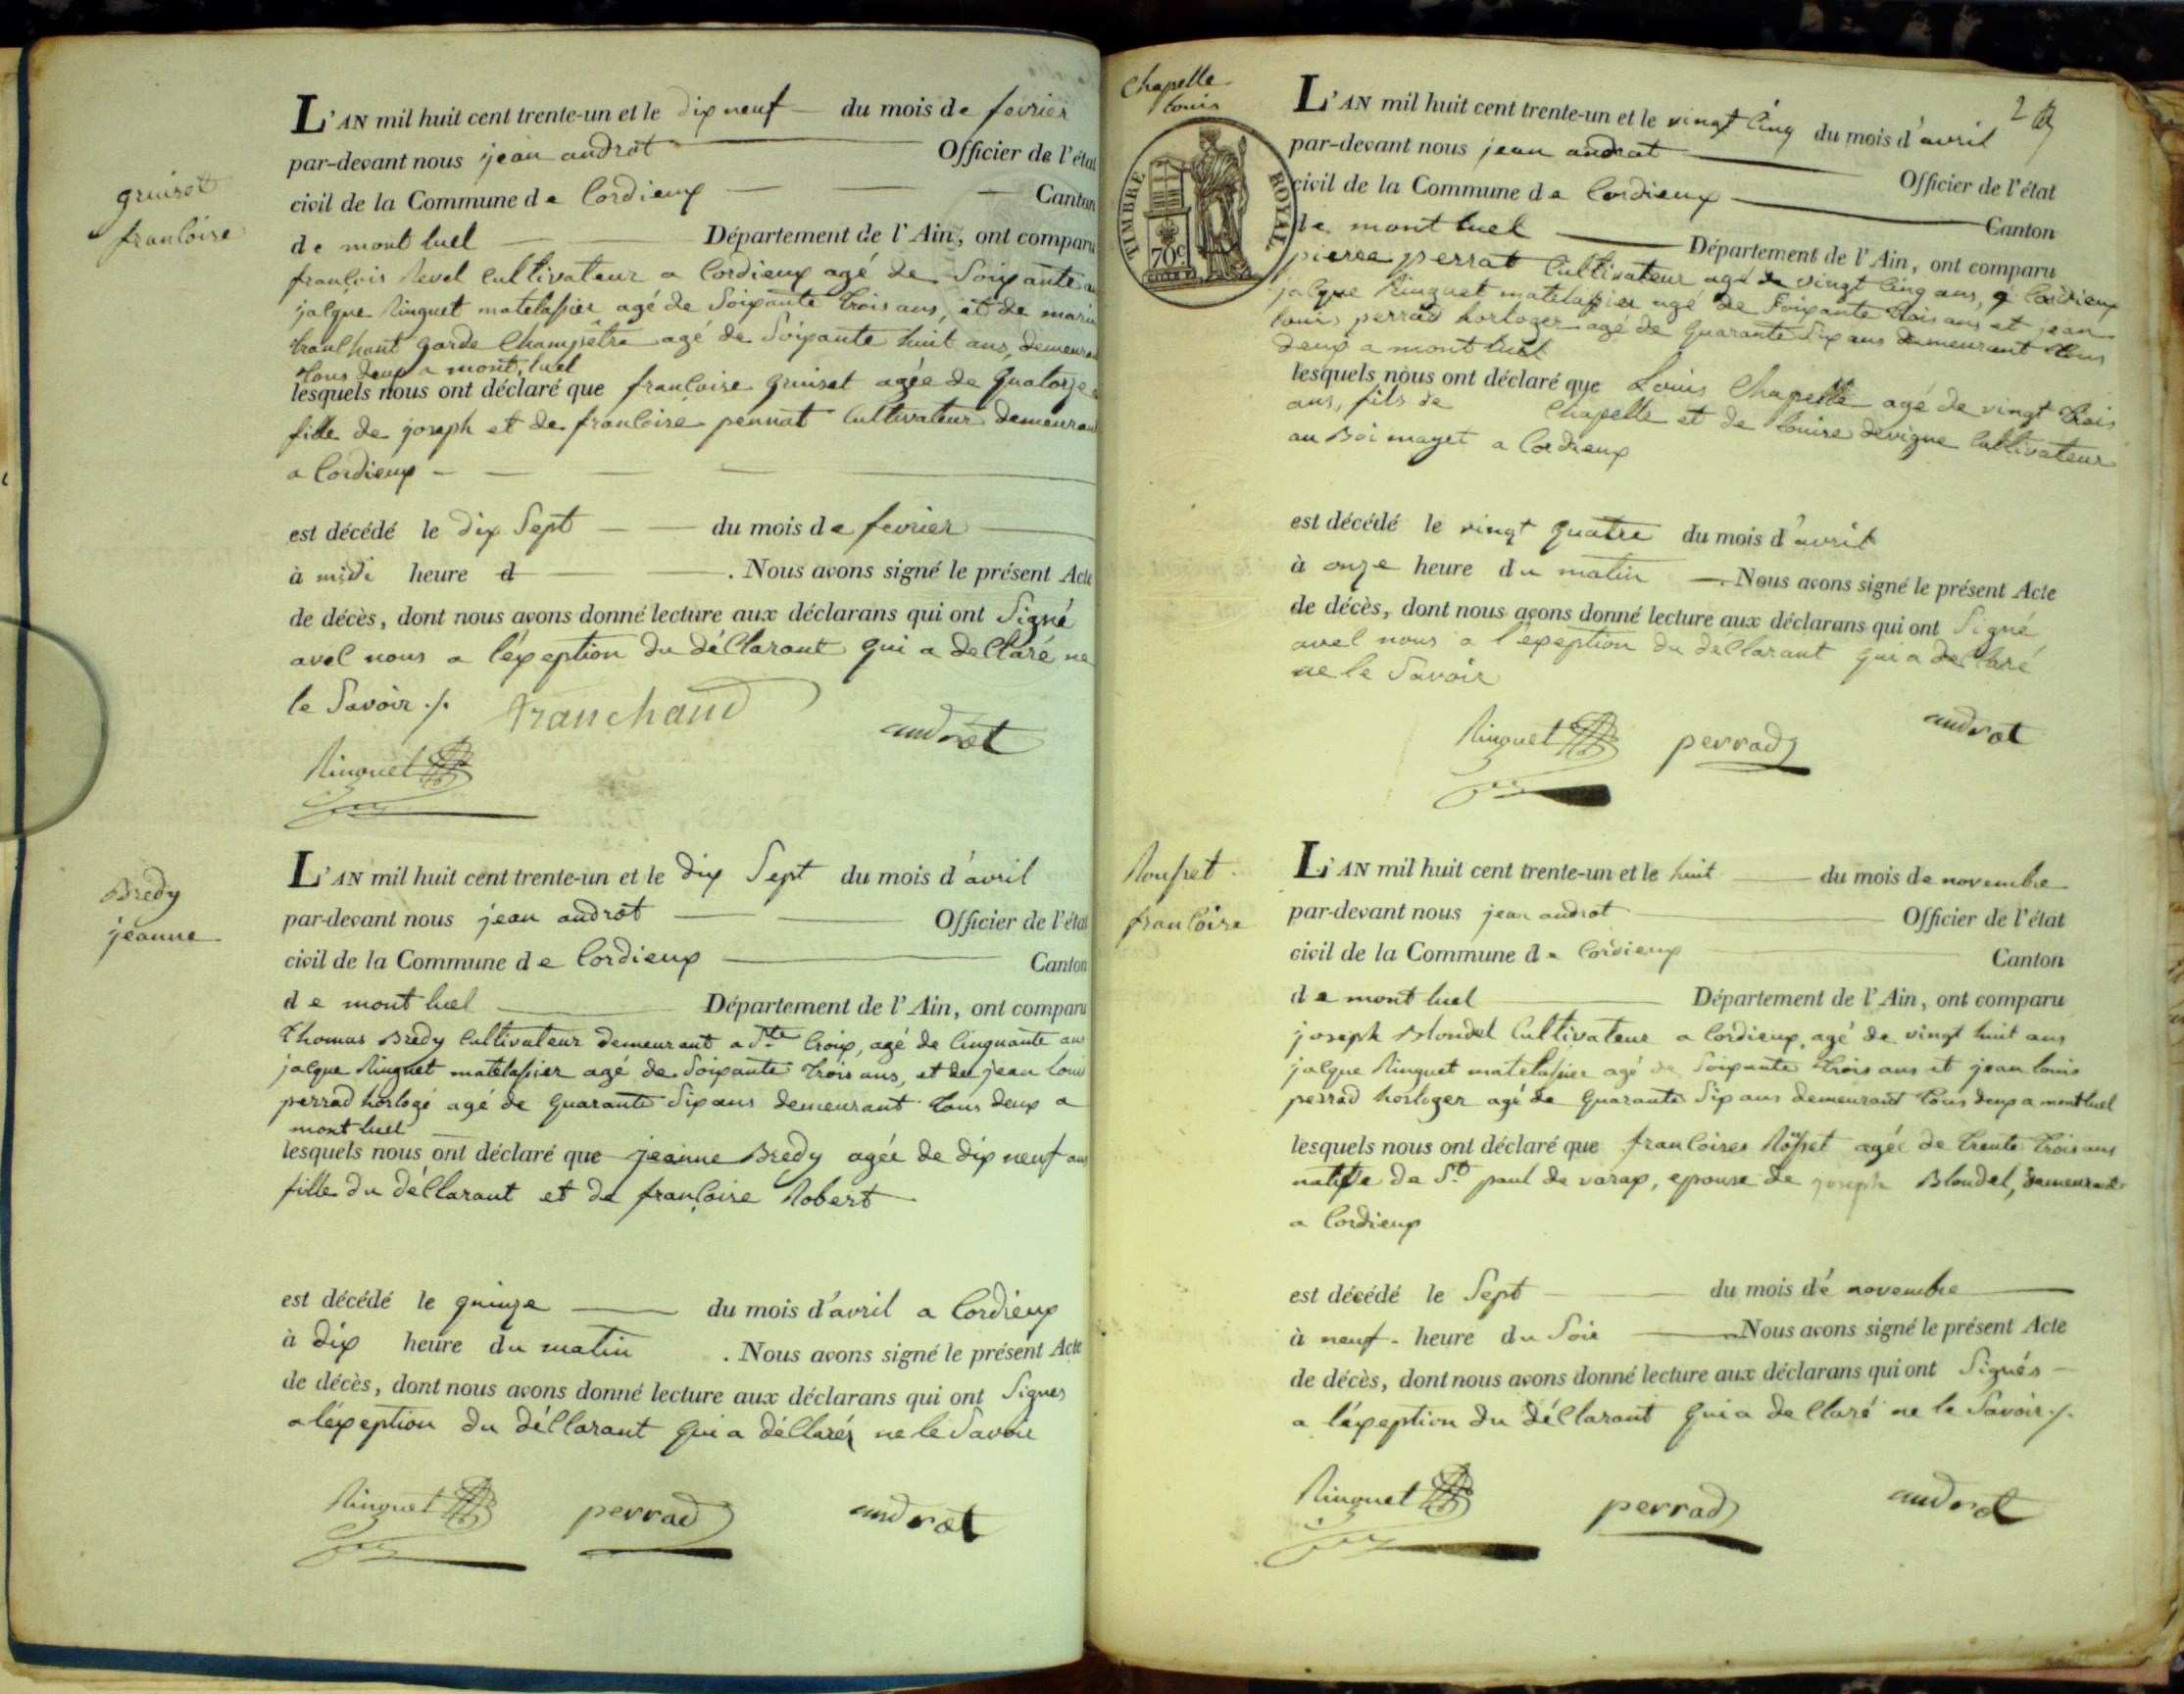 gruiset
francoise
L'AN mil huit cent trente-un et le dix neuf du mois de fevrier
par-devant nous jean androt Officier de l'état
civil de la Commune de Cordieux Canton
de mont luel Département de l'Ain, ont comparu
francois Revel Cultivateur a Cordieux agé de Soixante
jalque Ringuet matelassier agé de Soixante trois ans, et de
tranchant garde Champêtre agé de Soixante huit ans,
tous deux a mont luel
lesquels nous ont déclaré que francoise gruiset agée de quatorze
fille de joseph et de francoise pennat Cultivateur
a Cordieux
est décédé le dix Sept du mois de fevrier
à midi heure d . Nous avons signé le présent Acte
de décès, dont nous avons donné lecture aux déclarans qui ont Signé
avec nous a l'exeption du déclarant qui a declaré ne
le Savoir ./.
tranchand
androt
Ringuet
Bredy
jeanne
L'AN mil huit cent trente-un et le dix Sept du mois d'avril
par-devant nous jean androt Officier de l'état
civil de la Commune de Cordieux Canton
de mont luel Département de l'Ain, ont comparu
Thomas Bredy Cultivateur demeurant a Ste Croix, agé de Cinquante ans
jalque Ringuet matelassier agé de Soixante trois ans, et de jean loui
perrad horlogé agé de quarante Six ans demeurant tous deux a
mont luel
lesquels nous ont déclaré que jeanne Bredy agée de dix neuf ans
fille du déclarant et de françoise Robert
est décédé le quinze du mois d'avril a Cordieux
à dix heure du matin . Nous avons signé le présent Acte
de décès, dont nous avons donné lecture aux déclarans qui ont Signes
a l'éxeption du déclarant qui a déclarés ne le Savoir
Ringuet perrad androt
Chapelle
Louis
TIMBRE ROYAL
70c
2
L'AN mil huit cent trente-un et le vingt Cinq du mois d'avril
par-devant nous jean androt Officier de l'état
civil de la Commune de Cordieux Canton
de mont luel Département de l'Ain, ont comparu
pierre perrat Cultivateur agé de vingt Cinq ans, a Cordieux
jalque Ringuet matelassier agé de Soixante trois ans et jean
louis perrad horloger agé de quarante Six ans demeurant tous
deux a mont luel
lesquels nous ont déclaré que Louis Chapelle agé de vingt trois
ans, fils de Chapelle et de Louise devigne Cultivateur
au Boi mayet a Cordieux
est décédé le vingt quatre du mois d'avril
à onze heure du matin . Nous avons signé le présent Acte
de décès, dont nous avons donné lecture aux déclarans qui ont Signé
avec nous a l'exeption du déclarant qui a declaré
ne le Savoir
Ringuet perrad androt
Rousset
francoise
L'AN mil huit cent trente-un et le huit du mois de novembre
par-devant nous jean androt Officier de l'état
civil de la Commune de Cordieux Canton
de mont luel Département de l'Ain, ont comparu
joseph Blondel Cultivateur a Cordieux, agé de vingt huit ans
jalque Ringuet matelassier agé de Soixante trois ans et jean louis
perrad horloger agé de quarante Six ans demeurant tous deux a montluel
lesquels nous ont déclaré que francoises Rousset agée de trente trois ans
native de St paul de varax, epouse de joseph Blondel, demeurant
a Cordieux
est décédé le Sept du mois dé novembre
à neuf heure du Soir . Nous avons signé le présent Acte
de décès, dont nous avons donné lecture aux déclarans qui ont Signés
a l'éxeption du déclarant qui a declaré ne le Savoir ./.
Ringuet perrad androt